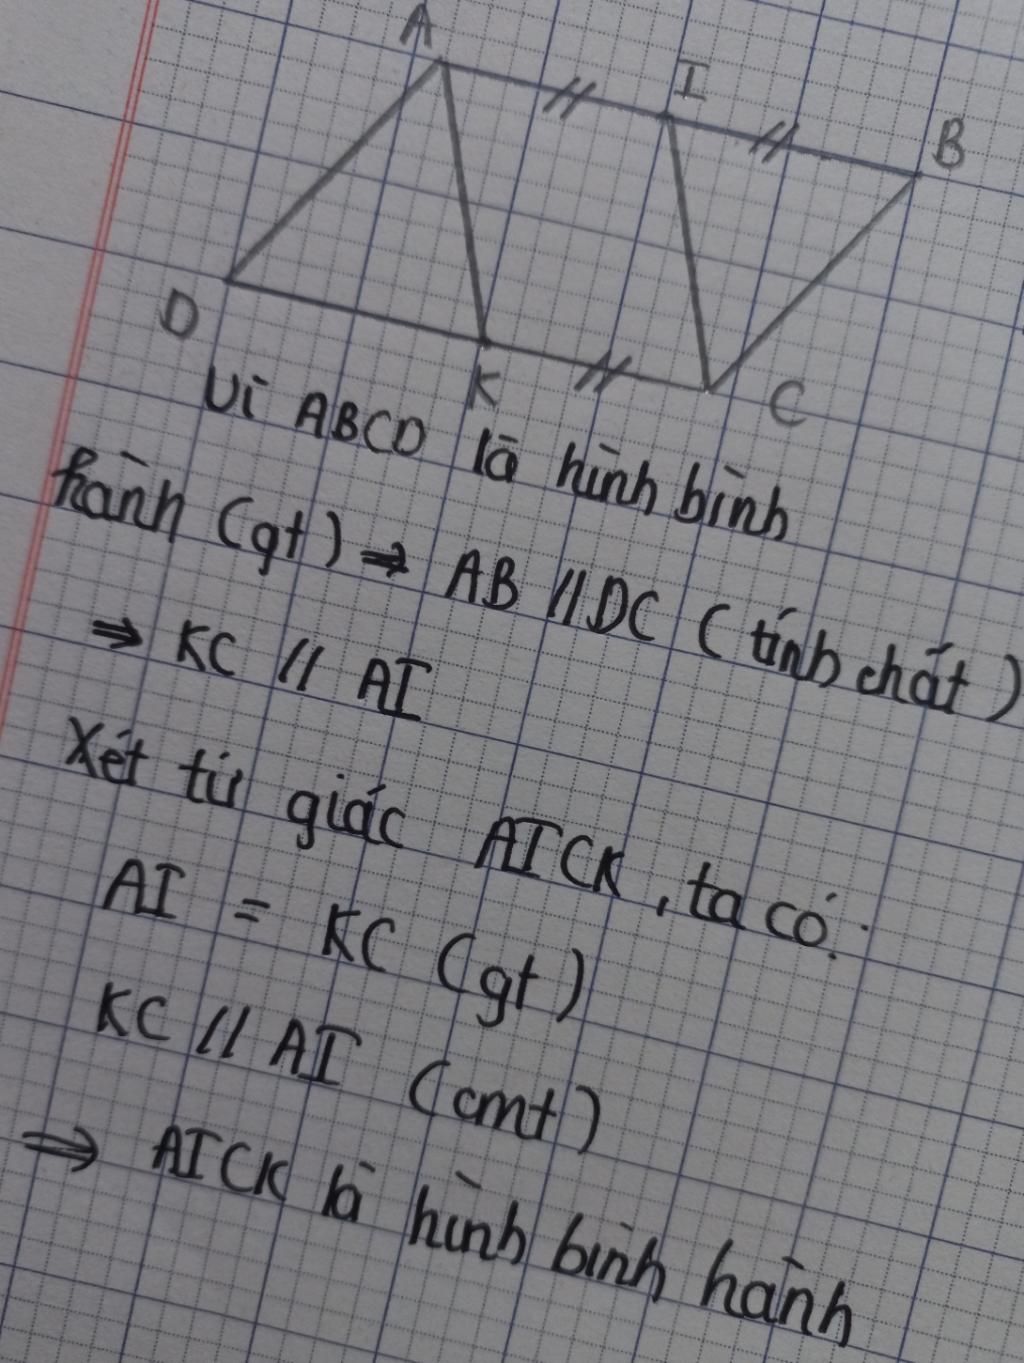 A
I
B
D
K
C
Vì ABCD là hình bình
hành (gt) ⇒ AB // DC (tính chất)
⇒ KC // AI
Xét tứ giác AICK, ta có:
AI = KC (gt)
KC // AI (cmt)
⇒ AICK là hình bình hành